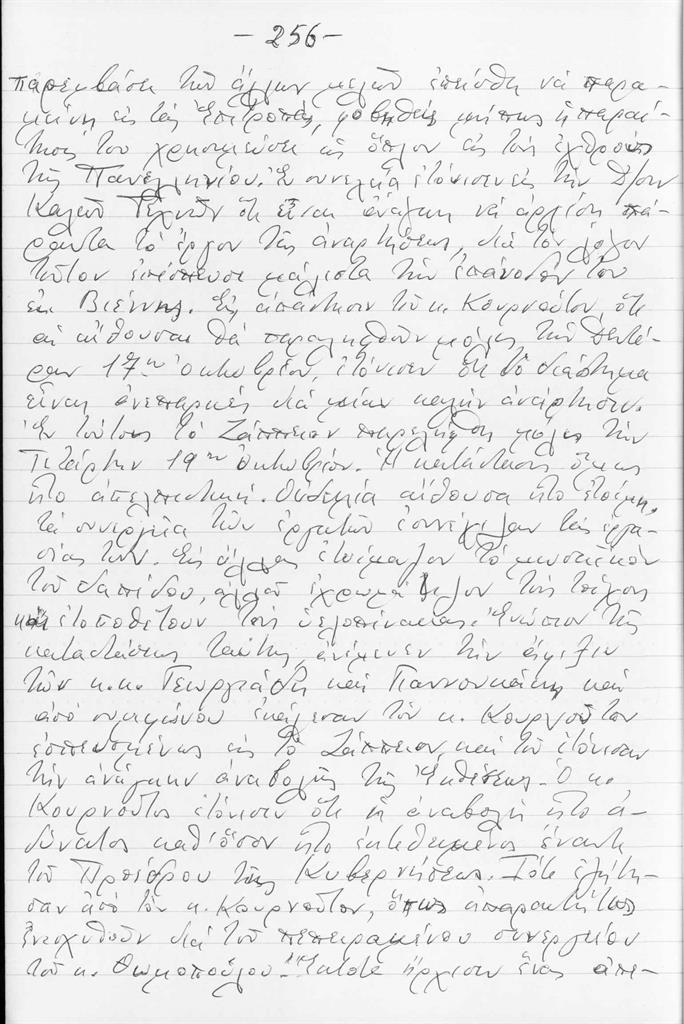 - 256 -
παρεμβάσει τῶν ἄλλων μελῶν ἐπείσθη νὰ παρα-
μείνῃ εἰς τὰς Ἐπιτροπάς, φοβηθεὶς μήπως ἡ παραί-
τησίς του χρησιμεύσῃ ὡς ὅπλον εἰς τοὺς ἐχθροὺς
τῆς Πανελληνίου. Ἐν συνεχείᾳ ἐτόνισεν εἰς τὴν Δ/σιν
Καλῶν Τεχνῶν ὅτι εἶναι ἀνάγκη νὰ ἀρχίσῃ πά-
ραυτα τὸ ἔργον τῆς ἀναρτήσεως, διὰ τὸν λόγον
τοῦτον ἐπέσπευσε μάλιστα τὴν ἐπάνοδόν του
ἐκ Βιέννης. Εἰς ἀπάντησιν τοῦ κ. Κουρνούτου, ὅτι
αἱ αἴθουσαι θὰ παραληφθοῦν μόλις τὴν Δευτέ-
ραν 17ην Ὀκτωβρίου, ἐτόνισεν ὅτι τὸ διάστημα
εἶναι ἀνεπαρκὲς διὰ μίαν καλὴν ἀνάρτησιν.
Ἐν τούτοις τὸ Ζάππειον παρελήφθη μόλις τὴν
Τετάρτην 19ην Ὀκτωβρίου. Ἡ κατάστασις ὅμως
ἦτο ἀπελπιστική. Οὐδεμία αἴθουσα ἦτο ἑτοίμη,
τὰ συνεργεῖα τῶν ἐργατῶν ἐσυνέχιζαν τὰς ἐργα-
σίας των. Εἰς ἄλλας ἑτοίμαζον τὸ μωσαϊκὸν
τοῦ δαπέδου, ἀλλοῦ ἐχρωμάτιζον τοὺς τοίχους
καὶ ἐτοποθέτουν τοὺς ὑελοπίνακας. Ἐνώπιον τῆς
καταστάσεως ταύτης, ἀνέμενεν τὴν ἄφιξιν
τῶν κ.κ. Γεωργιάδη καὶ Γιαννουκάκη καὶ
ἀπὸ συμφώνου ἐκάλεσαν τὸν κ. Κουρνοῦτον
ἐσπευσμένως εἰς τὸ Ζάππειον καὶ τοῦ ἐτόνισαν
τὴν ἀνάγκην ἀναβολῆς τῆς Ἐκθέσεως. Ὁ κ.
Κουρνοῦτος ἐτόνισεν ὅτι ἡ ἀναβολὴ ἦτο ἀ-
δύνατος καθ' ὅσον ἦτο ἐκτεθειμένος ἔναντι
τοῦ Προέδρου τῆς Κυβερνήσεως. Τότε ἐζήτη-
σαν ἀπὸ τὸν κ. Κουρνοῦτον, ὅπως ἀπαραιτήτως
ἐνισχυθοῦν διὰ τοῦ πεπειραμένου συνεργείου
τοῦ κ. Θωμοπούλου. Ἔκτοτε ἤρχισεν ἕνας ἀπε-